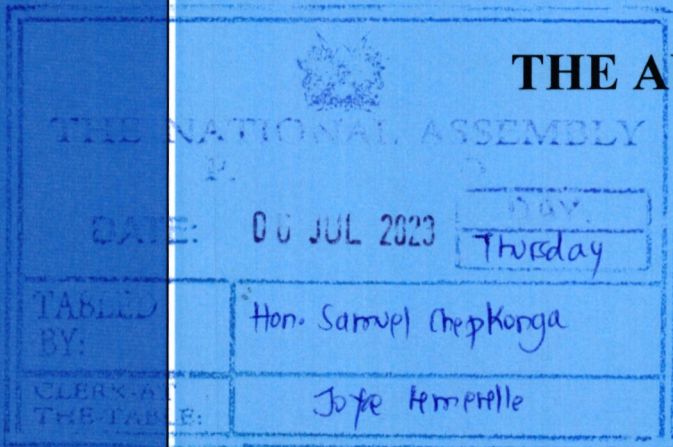 THE A
THE NATIONAL ASSEMBLY
DATE: 06 JUL 2023 DAY.
Thursday
TABLED BY: Hon. Samuel Chepkonga
CLERK-AT THE-TABLE: Joyce